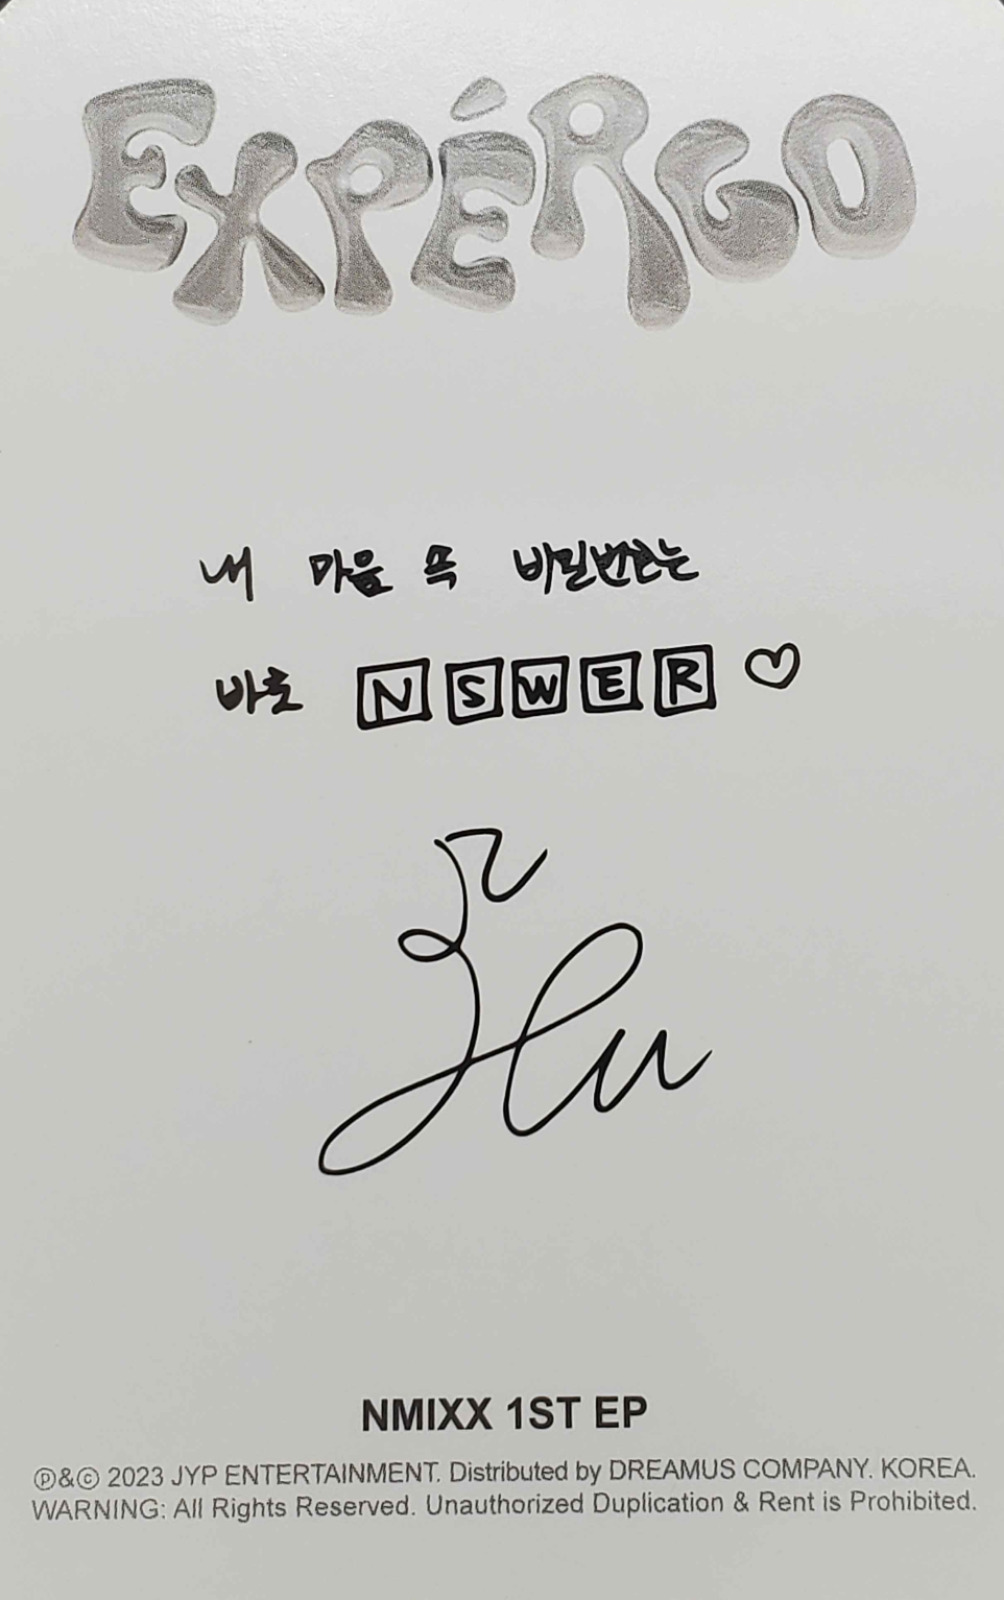 EXPÉRGO
내 마음 속 비밀번호는
바로 NSWER ♡
NMIXX 1ST EP
Ⓟ&© 2023 JYP ENTERTAINMENT. Distributed by DREAMUS COMPANY. KOREA.
WARNING: All Rights Reserved. Unauthorized Duplication & Rent is Prohibited.